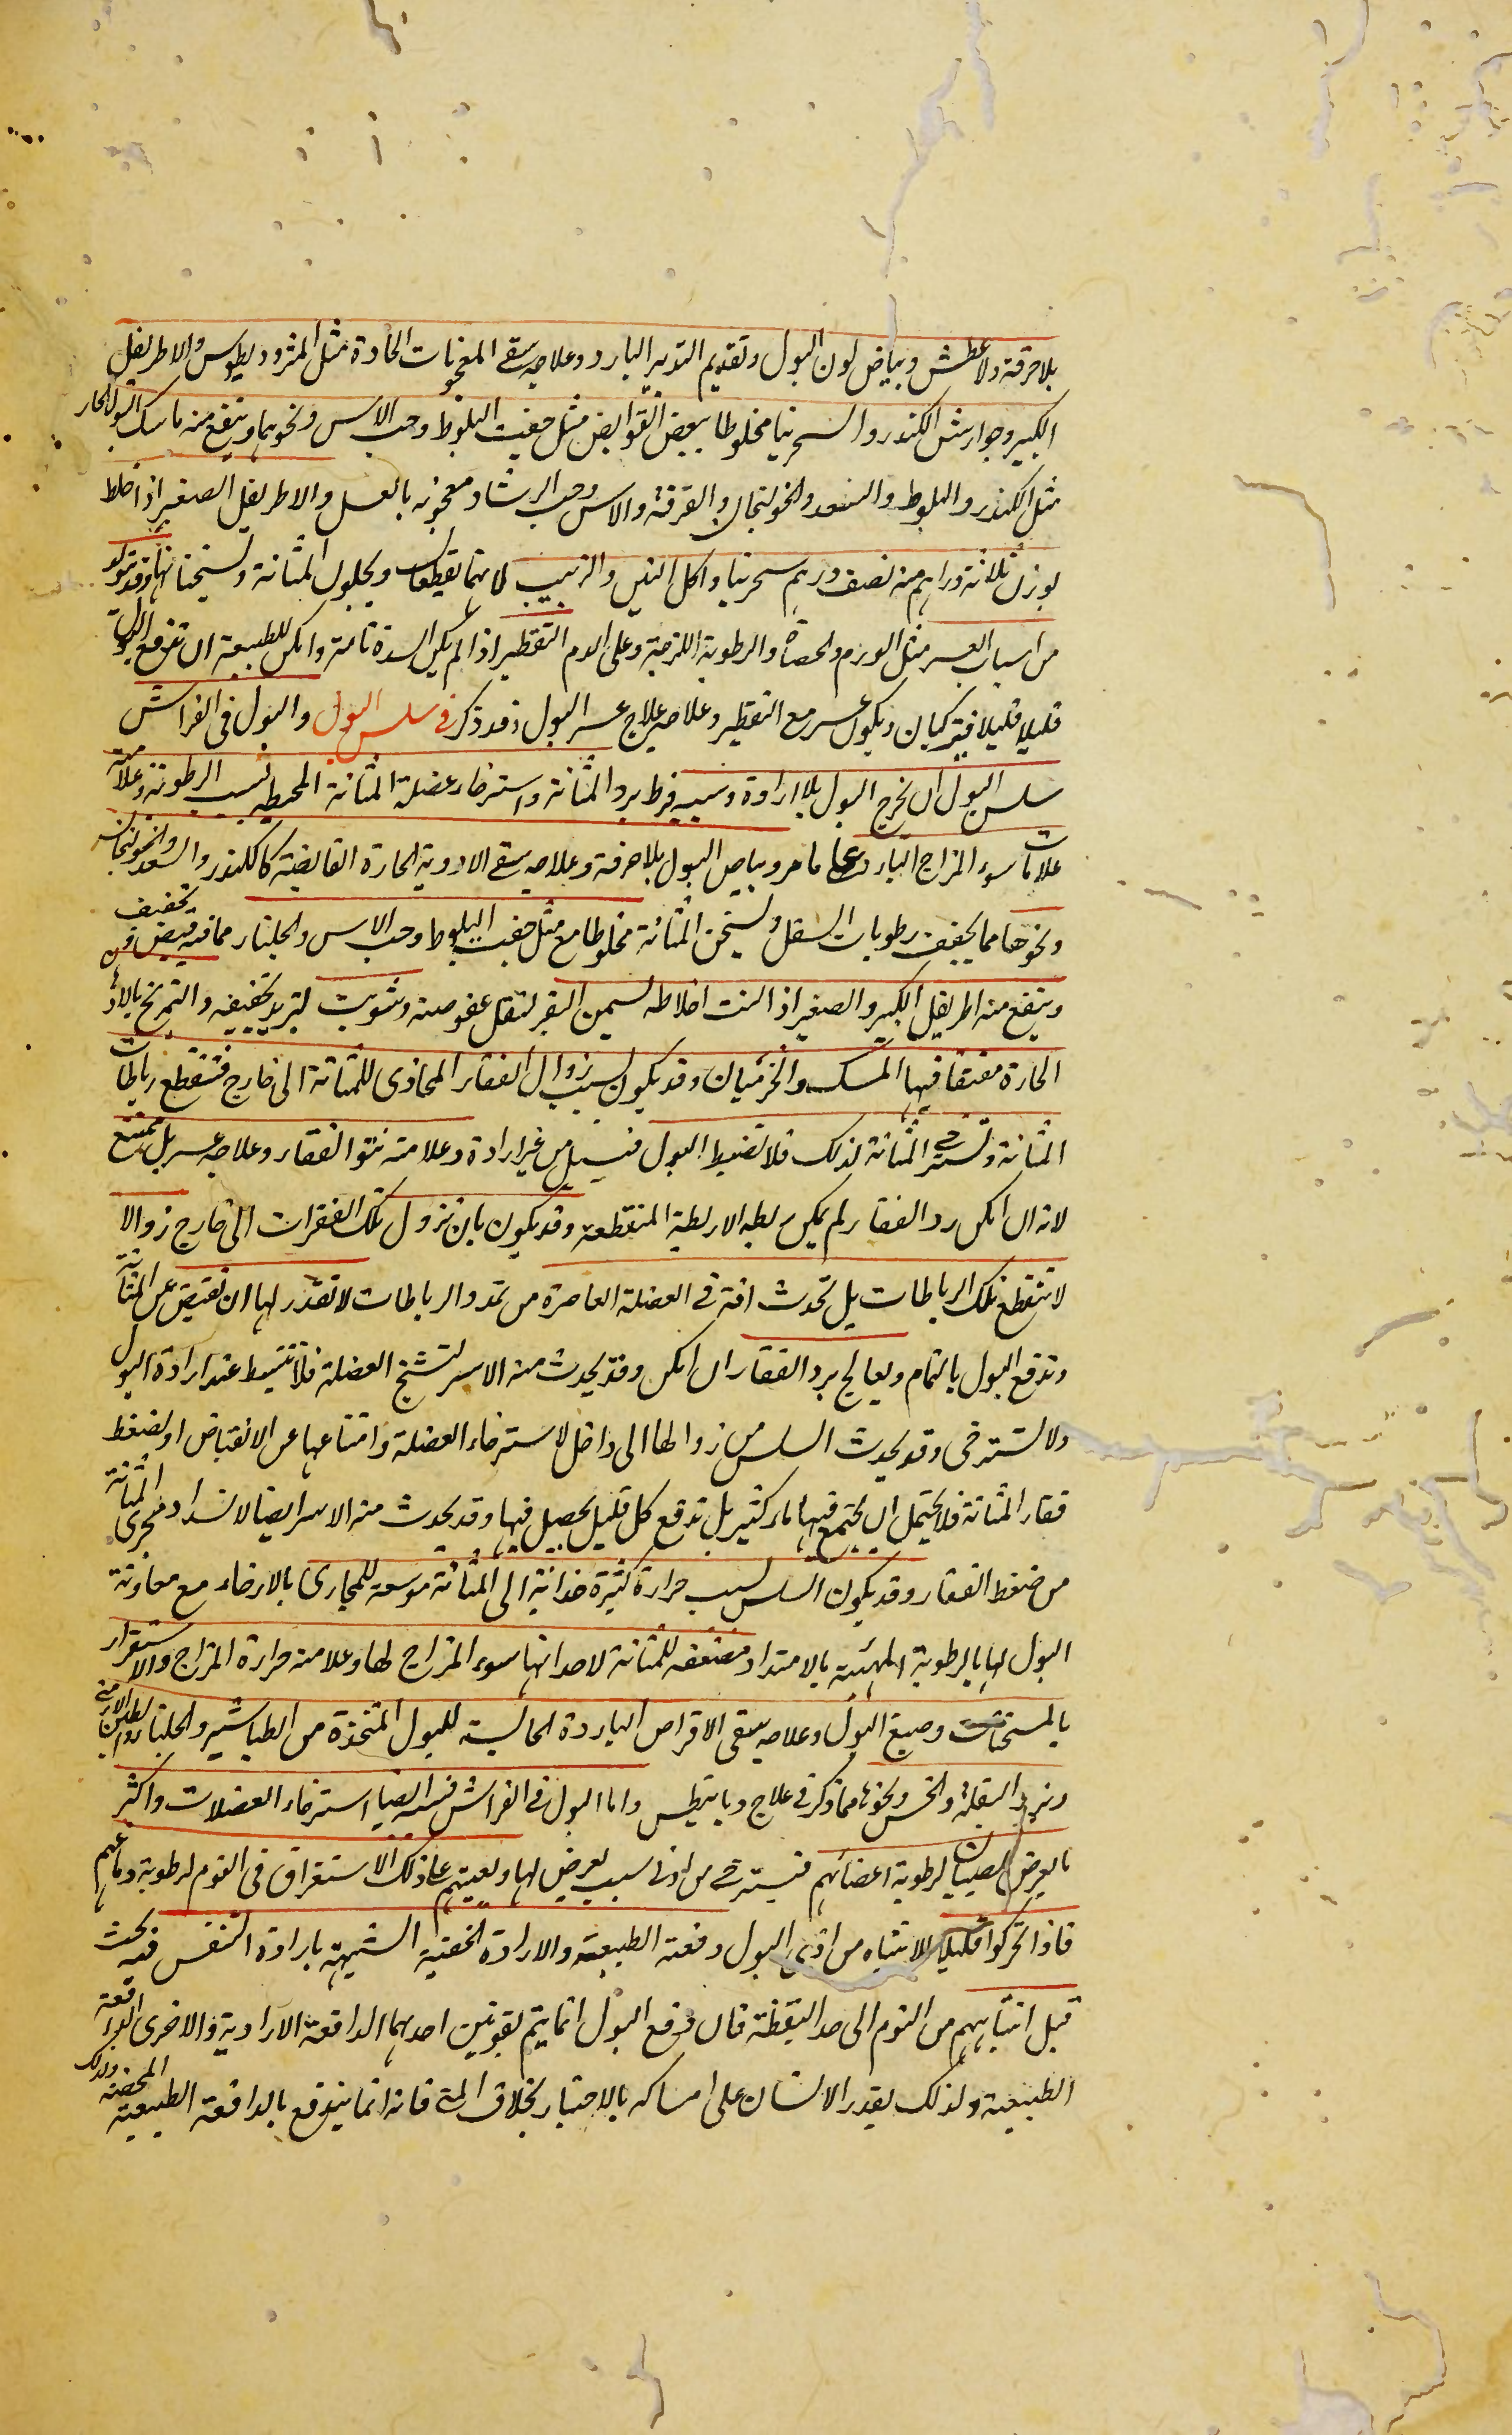 بلا حرقة ولا عطش وبياض لون البول وتقديم التدبير البارد وعلاجه سقي المعجونات الحادة مثل المثروديطوس والاطريفل
الكبير وجوارش الكندر والسجرنيا مخلوطا ببعض القوابض مثل جفت البلوط وحب الآس ونحوهما وينفع منه ماسك البول الحار
مثل الكندر والبلوط والسعد والخولنجان والقرفة والآس وحب الرشاد معجونه بالعسل والاطريفل الصغير اذا خلط
بوزن ثلاثة دراهم منه نصف درهم سجرنيا واكل التين والزبيب لانهما يقطعان ويجلوان المثانة ويسخنانها وقد يتولد
من اسباب العسر مثل الورم والحصاة والرطوبة اللزجة وعلى الدم التقطير اذا لم يكن السدة تامة وامكن للطبيعة ان تدفع البول
قليلا قليلا فيتركبان ويكون عسر مع التقطير وعلاجه علاج عسر البول وقد ذكر في سلس البول والبول في الفراش
سلس البول ان يخرج البول بلا ارادة وسببه فرط برد المثانة واسترخاء عضلة المثانة المحيطة بسبب الرطوبة وعلامته
علامات سوء المزاج البارد على ما مر وبياض البول بلا حرقة وعلاجه سقي الادوية الحارة القابضة كالكندر والسعد والخولنجان
ونحوها مما يجفف رطوبات السفل ويسخن المثانة مخلوطا مع مثل جفت البلوط وحب الآس والجلنار مما فيه قبض وتجفيف
وينفع منه اطريفل الكبير والصغير اذا لتت اخلاطه بسمن البقر لتقل عفوصته وشويت ليزيد تجفيفه والتمريخ بالادهان
الحارة مفتقا فيها المسك والخزميان وقد يكون بسبب زوال الفقار المحاذي للمثانة الى خارج فتنقطع رباطات
المثانة وتسترخي المثانة لذلك فلا تضبط البول فيسيل من غير ارادة وعلامته نتو الفقار وعلاجه عسر بل ممتنع
لانه ان امكن رد الفقار لم يمكن ربط الاربطة المنقطعة وقد يكون بان تزول تلك الفقرات الى خارج زوالا
لا تنقطع تلك الرباطات بل تحدث آفة في العضلة العاصرة من تمدد الرباطات لا تقدر لها ان تقبض عن المثانة
وتدفع البول بالتمام ويعالج برد الفقار ان امكن وقد يحدث منه الاسر لتشنج العضلة فلا تنبسط عند ارادة البول
ولا تسترخي وقد يحدث السلس من زوالها الى داخل لاسترخاء العضلة وامتناعها عن الانقباض او لضغط
فقار المثانة فلا يحتمل ان يجتمع فيها ماء كثير بل تدفع كل قليل يحصل فيها وقد يحدث منه الاسر ايضا لانسداد مجرى المثانة
من ضغط الفقار وقد يكون السلس بسبب حرارة كثيرة جذابة الى المثانة موسعة للمجاري بالارخاء مع معاونة
البول لها بالرطوبة المهيئة بالامتداد مضعفه للمثانة لاحداثها سوء المزاج لها وعلامته حرارة المزاج والاستقرار
بالمسخنات وصبغ البول وعلاجه سقي الاقراص الباردة الحابسة للبول المتخذة من الطباشير والجلنار والطين الارمني
وبزر البقلة والخس ونحوها مما ذكر في علاج ديابيطس واما البول في الفراش فسببه ايضا استرخاء العضلات واكثر
ما يعرض للصبيان لرطوبة اعضائهم فتسترخي من ادنى سبب يعرض لها ويعينهم على ذلك الاستغراق في النوم لرطوبة دماغهم
فاذا تحركوا قليلا للانتباه من اذى البول دفعته الطبيعة والارادة الخفية الشبيهة بارادة التنفس فيه تحت
قبل انتباههم من النوم الى حد اليقظة فان دفع البول انما يتم بقوتين احدهما الدافعة الارادية والاخرى الدافعة
الطبيعية ولذلك يقدر الانسان على امساكه بالاختيار بخلاف المني فانه انما يندفع بالدافعة الطبيعية المحضة ولذلك